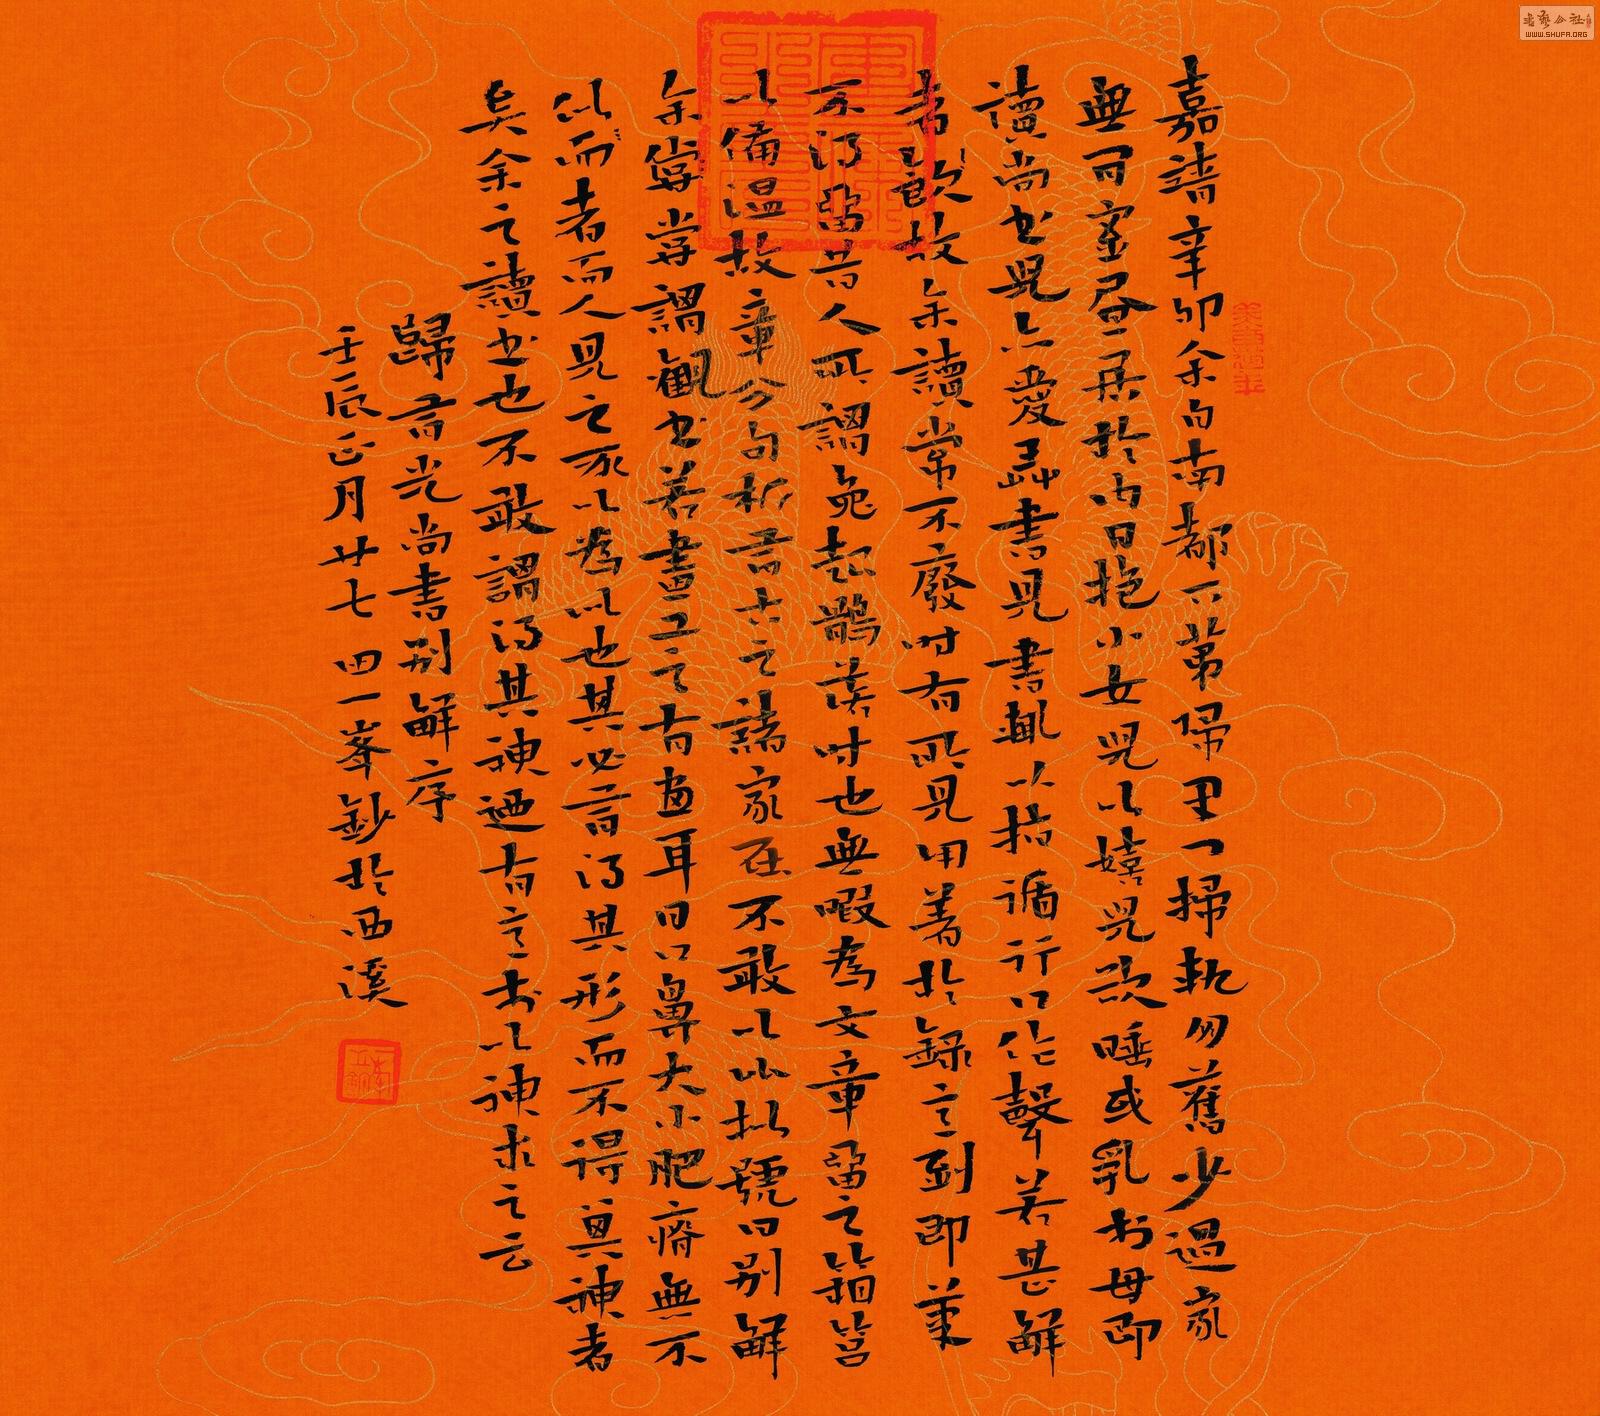 嘉靖辛卯余自南都下第歸閉門掃軌朋舊少過家
無閒室晝居於內日抱小女兒以嬉兒欲睡或乳於母即
讀尚書兒亦愛弄書見書輒以指循行口作聲若甚解
者歟故余讀常不廢時有所見用著於錄意到即筆
不得留昔人所謂兔起鶻落時也無暇為文章留之箱笥
以備溫故章分句析有古之諸家在不敢以比擬號曰別解
余嘗嘗謂觀書若畫工之有畫耳目口鼻大小肥瘠無不
似而者而人見之不以為似也其必有得其形而不得其神者
矣余之讀書也不敢謂得其神迺有意於以神求之云
歸有光尚書別解序
壬辰正月廿七 四一峯鈔於西溪
書藝公社
WWW.SHUFA.ORG